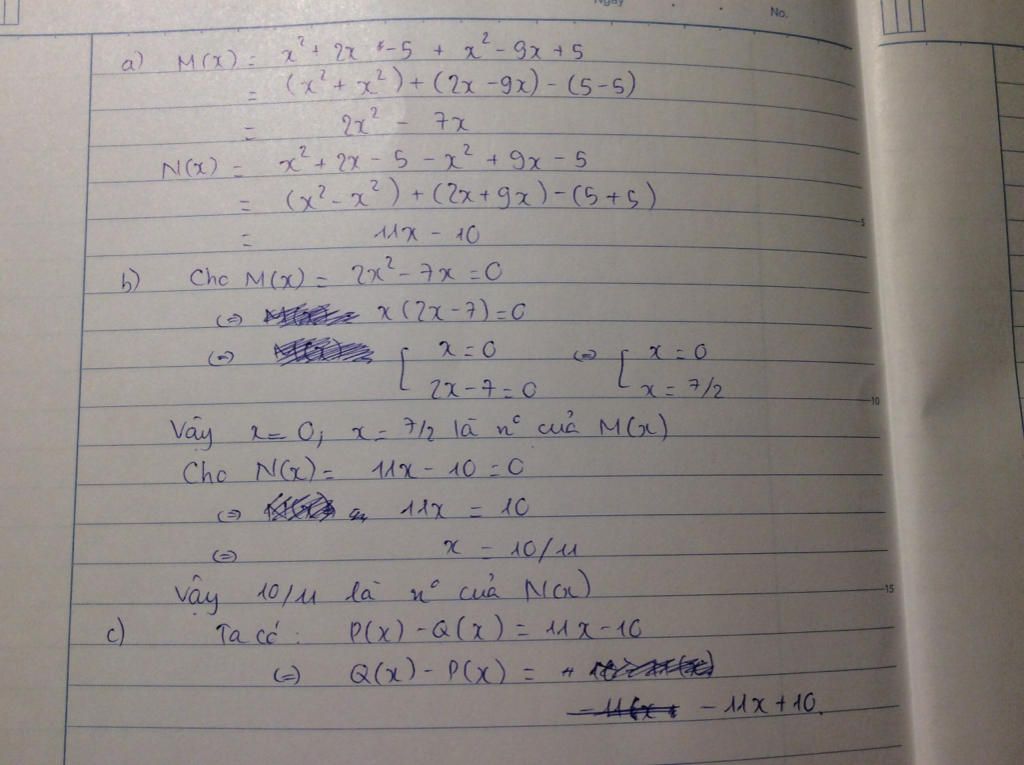 Ngày
No.
a) M(x) = x² + 2x - 5 + x² - 9x + 5
= (x² + x²) + (2x - 9x) - (5 - 5)
= 2x² - 7x
N(x) = x² + 2x - 5 - x² + 9x - 5
= (x² - x²) + (2x + 9x) - (5 + 5)
= 11x - 10
b) Cho M(x) = 2x² - 7x = 0
(=) x(2x - 7) = 0
(=) [ x = 0 (=) [ x = 0
2x - 7 = 0 x = 7/2
Vậy x = 0; x = 7/2 là n° của M(x)
Cho N(x) = 11x - 10 = 0
(=) 11x = 10
(=) x = 10/11
Vậy 10/11 là n° của N(x)
c) Ta có: P(x) - Q(x) = 11x - 10
(=) Q(x) - P(x) =
- 11x + 10.
5
10
15